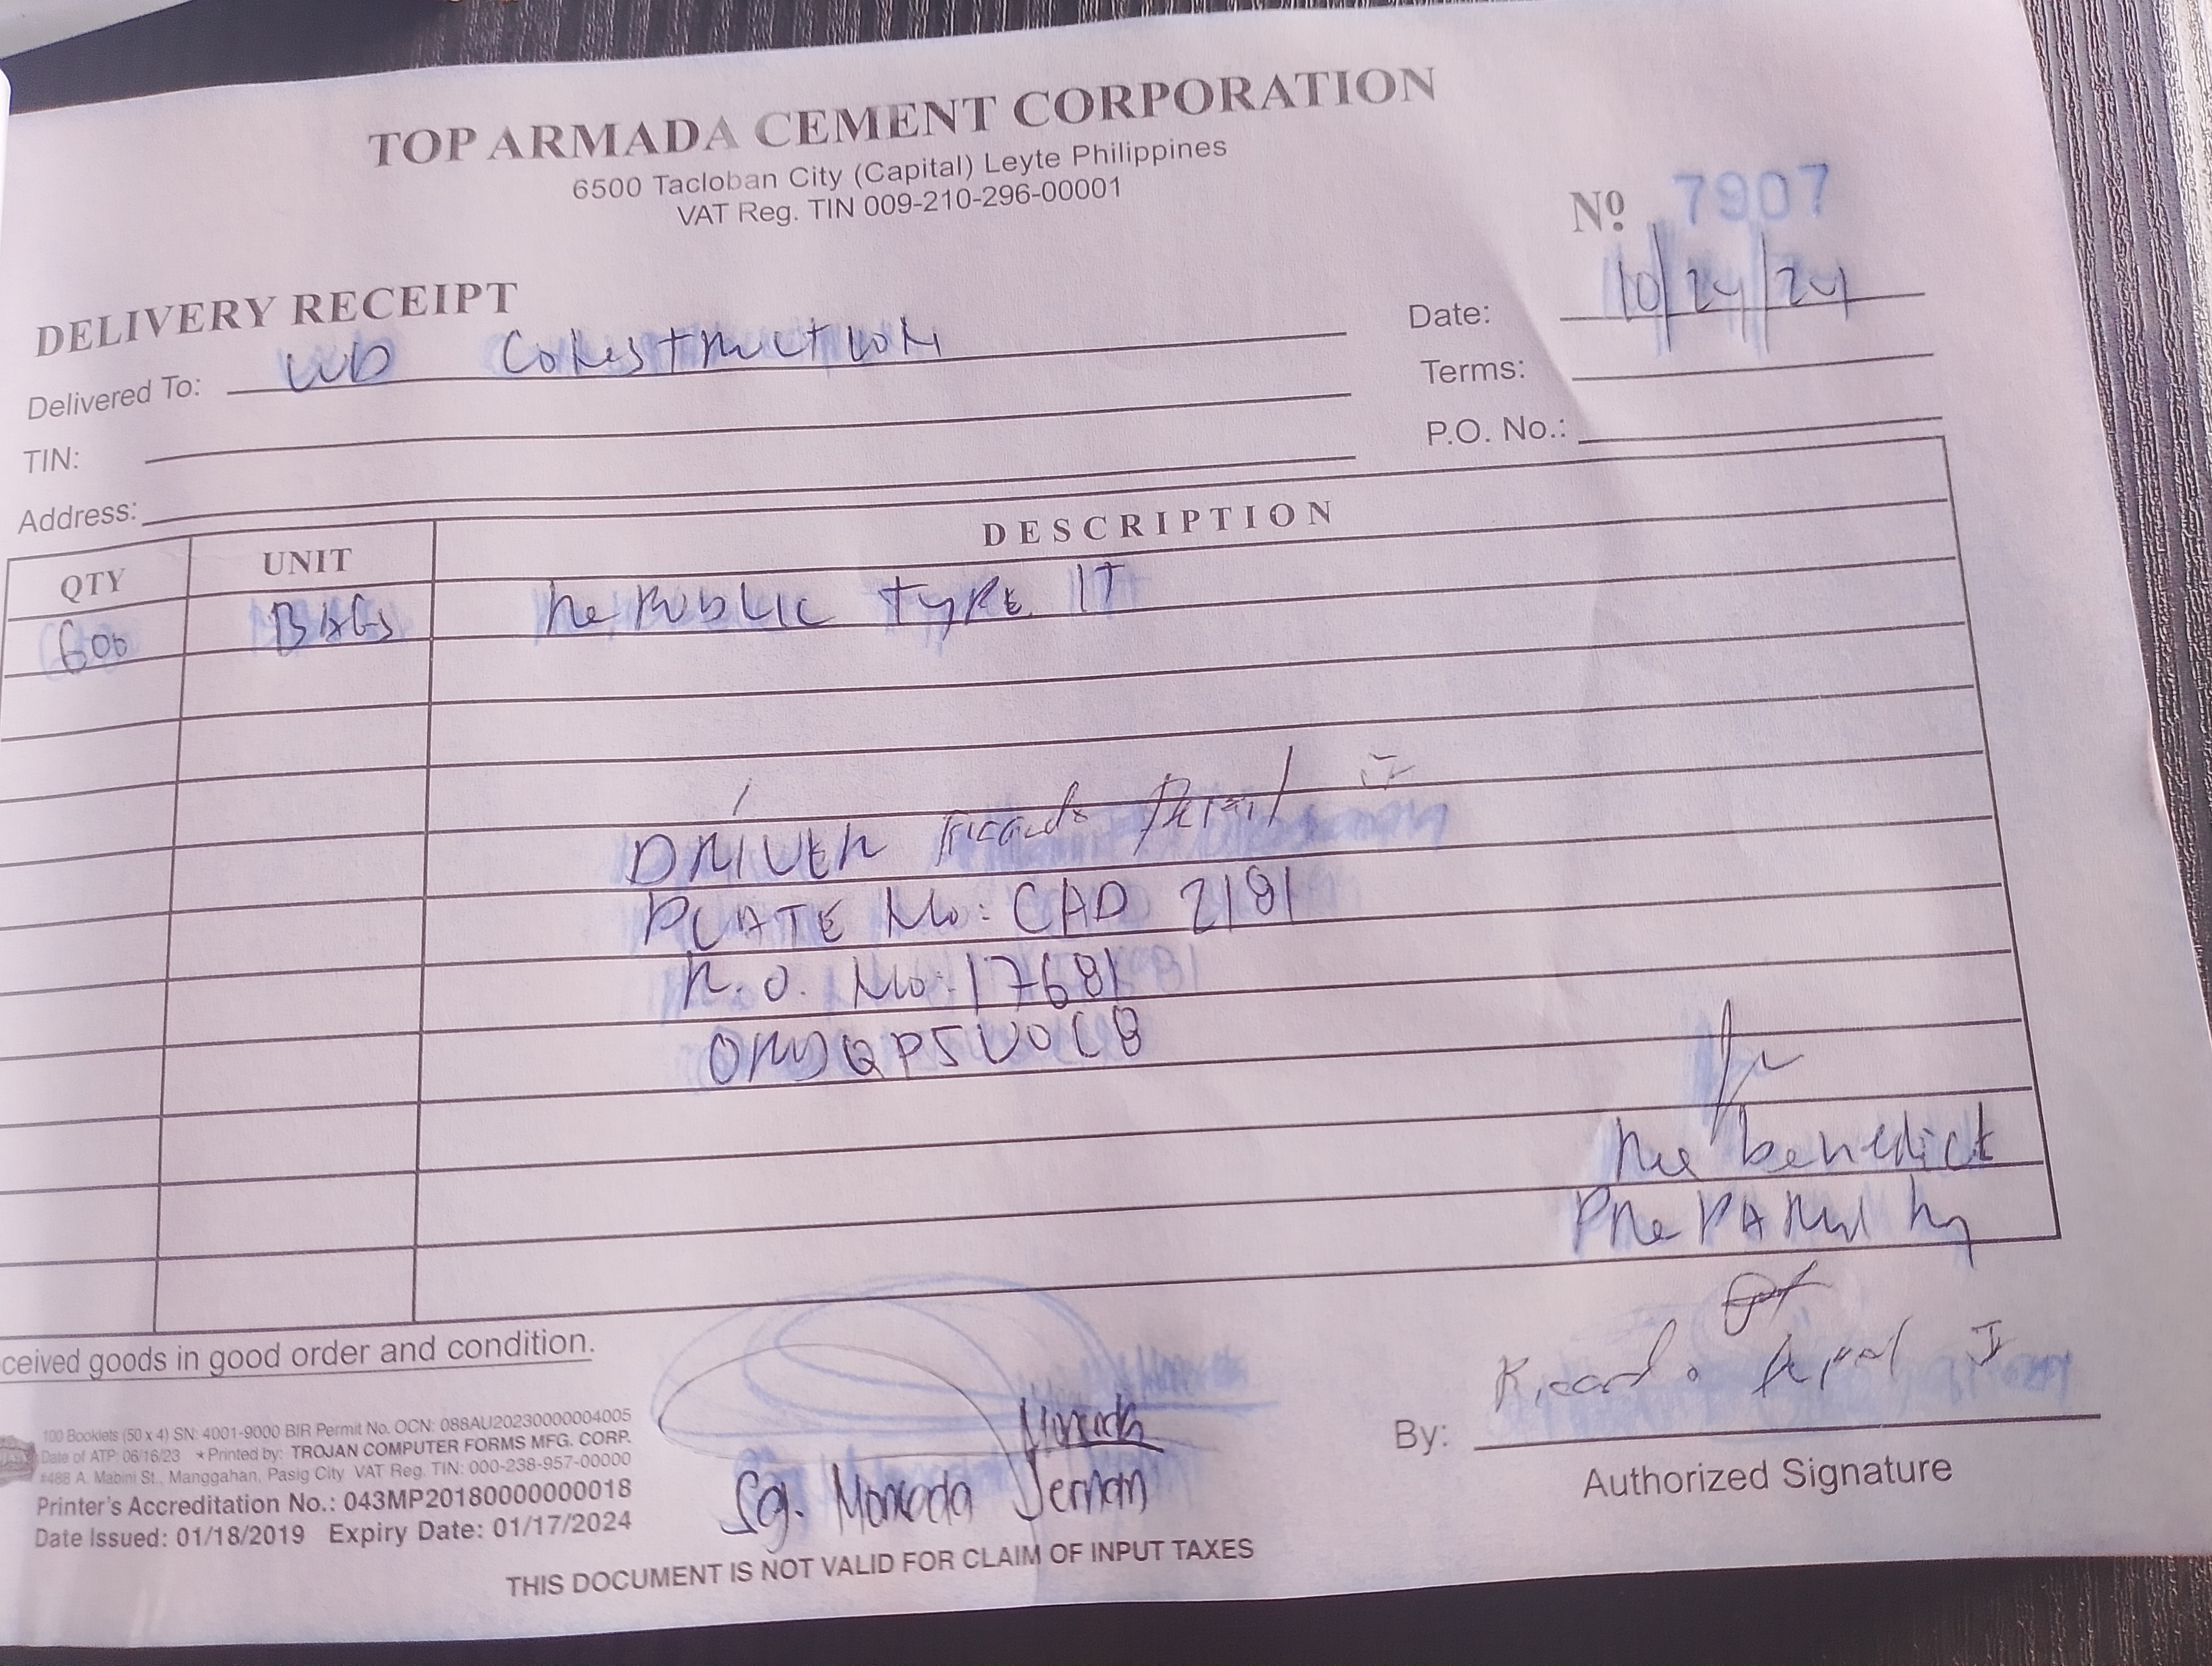 TOP ARMADA CEMENT CORPORATION
6500 Tacloban City (Capital) Leyte Philippines
VAT Reg. TIN 009-210-296-00001
Nº 7907
DELIVERY RECEIPT
Date: 10/24/24
Delivered To: WD Construction
Terms:
TIN:
P.O. No.:
Address:
QTY UNIT DESCRIPTION
600 BAGS Republic Type 1T
DRIVER Jr
PLATE No: CAD 2181
R.O. No: 17681
Benedict
Prepared by
ceived goods in good order and condition.
Ricardo
By:
Authorized Signature
100 Booklets (50 x 4) SN: 4001-9000 BIR Permit No. OCN: 088AU20230000004005
Date of ATP: 06/16/23 * Printed by: TROJAN COMPUTER FORMS MFG. CORP.
#488 A. Mabini St., Manggahan, Pasig City VAT Reg. TIN: 000-238-957-00000
Printer's Accreditation No.: 043MP20180000000018
Date Issued: 01/18/2019 Expiry Date: 01/17/2024
Moncada
Sg. Moncada
THIS DOCUMENT IS NOT VALID FOR CLAIM OF INPUT TAXES